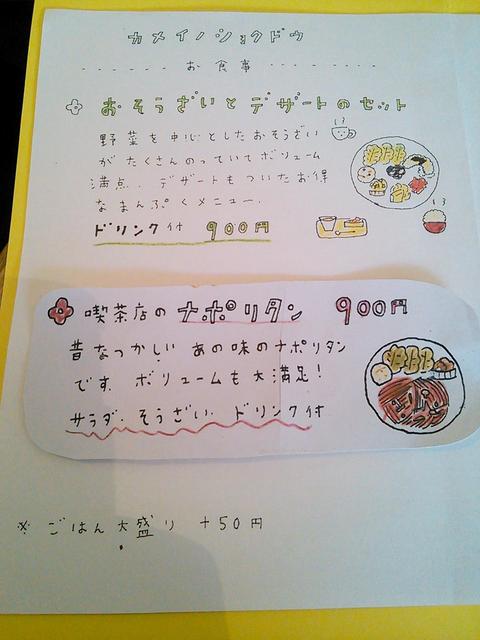 カメイノショクドウ
お食事
おそうざいとデザートのセット
野菜を中心としたおそうざい
がたくさんのっていてボリューム
満点。デザートもついたお得
なまんぷくメニュー。
ドリンク付 900円
喫茶店のナポリタン 900円
昔なつかしい あの味のナポリタン
です。ボリュームも大満足!
サラダ・そうざい・ドリンク付
※ ごはん 大盛り +50円